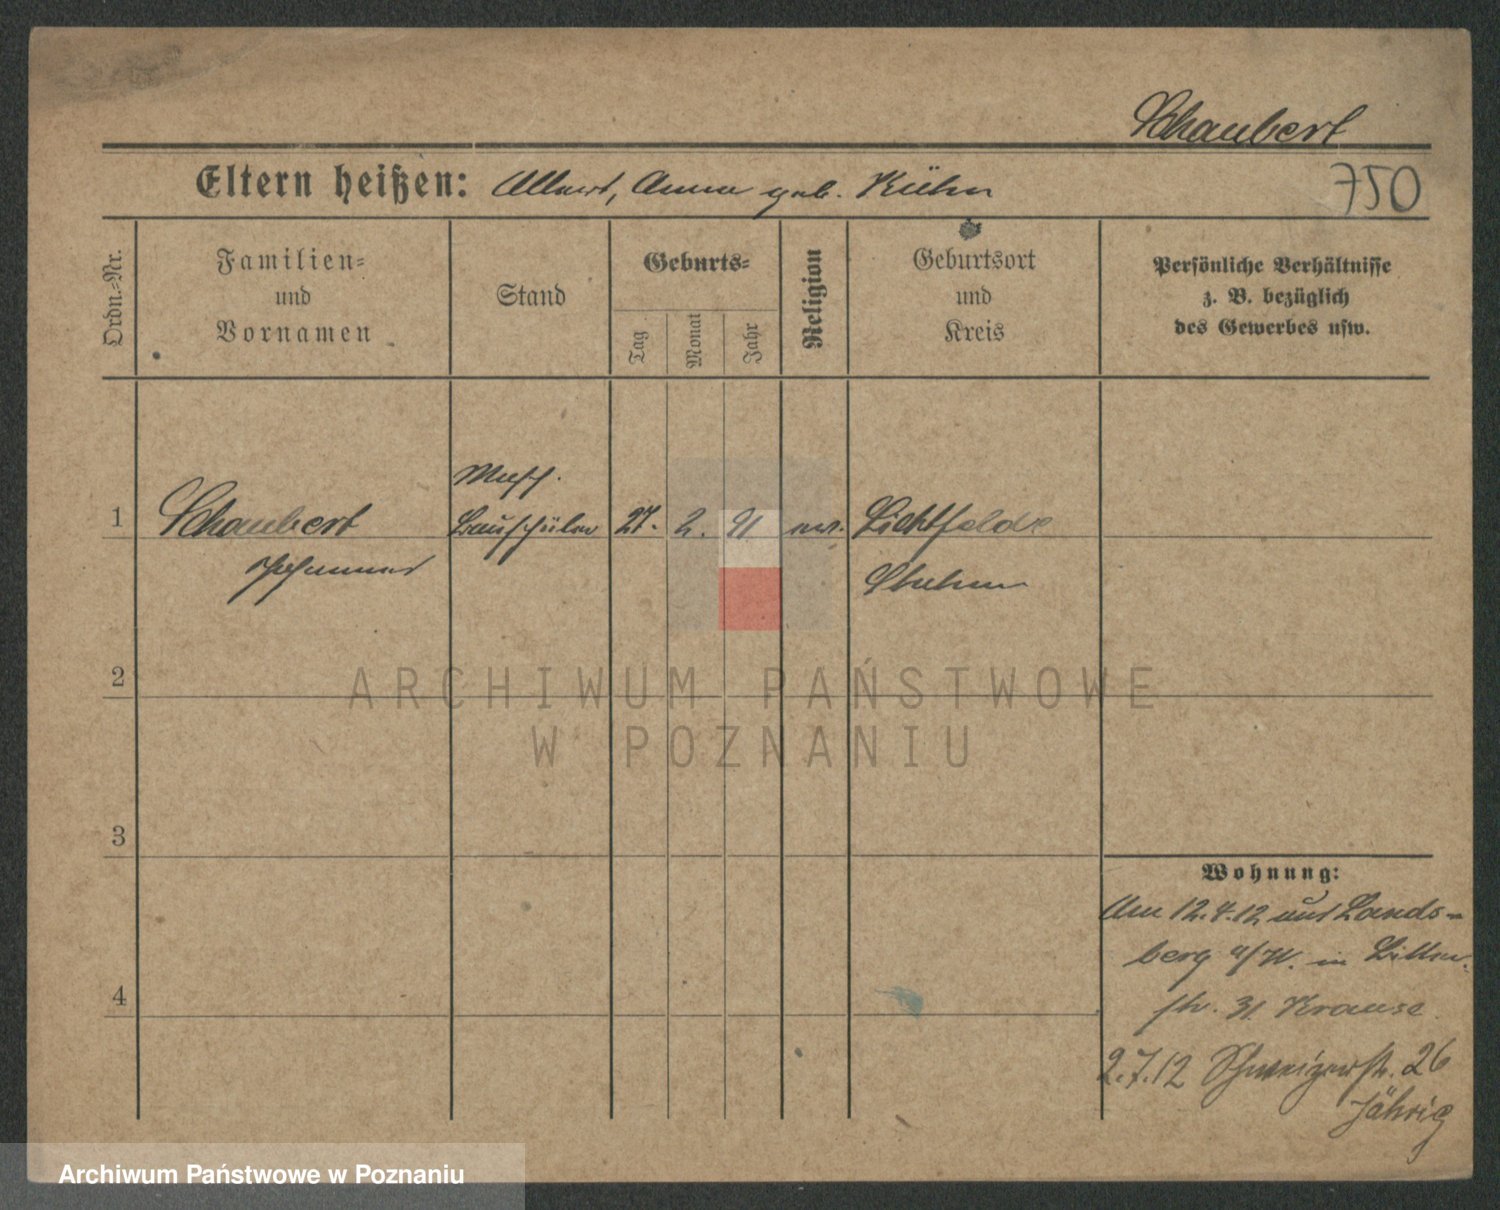 Schaubert
Eltern heißen: Albert, Anna geb. Kühn
750
Ordn.-Nr.
Familien-
und
Vornamen
Stand
Geburts-
Tag
Monat
Jahr
Religion
Geburtsort
und
Kreis
Persönliche Verhältnisse
z. B. bezüglich
des Gewerbes usw.
1
Schaubert
Johannes
Masch.
Bauschüler
27. 2. 91 ev.
Lichtfelde
Stuhm
2
3
4
Wohnung:
Am 12.4.12 aus Lands-
berg a/W. in
str. 31. Krause.
2.7.12 Schweizerstr. 26
Jährig
ARCHIWUM PAŃSTWOWE
W POZNANIU
Archiwum Państwowe w Poznaniu